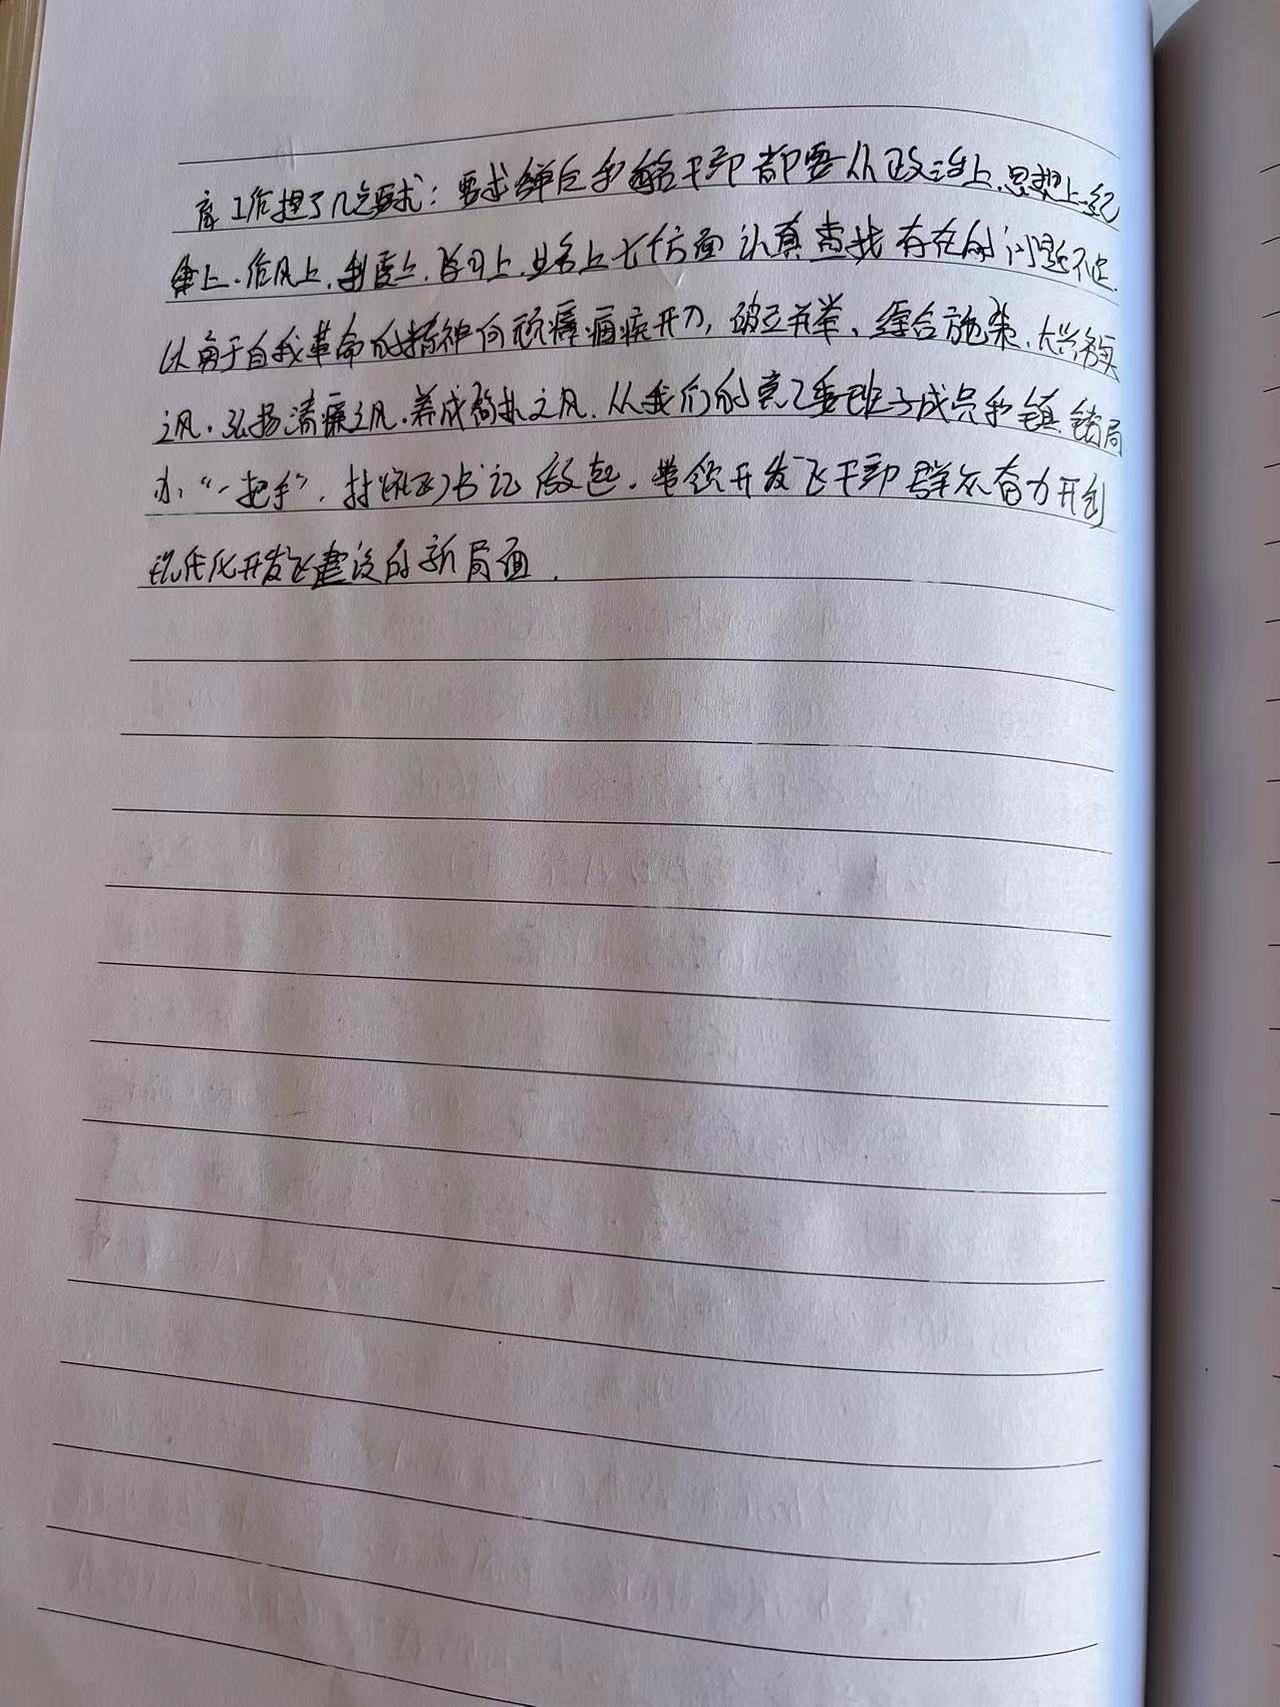 工作提了几点要求：要求 和 干部都要从政治上、思想上、纪
律上、作风上、制度上、学习上、业务上七个方面认真查找存在的问题不足.
以勇于自我革命的精神向顽瘴痼疾开刀，破立并举、综合施策、大兴务实
之风、弘扬清廉之风、养成简朴之风. 从我们的党工委班子成员和镇 局
办“一把手”、村 书记做起. 带领开发区干部群众奋力开创
现代化开发区建设的新局面.